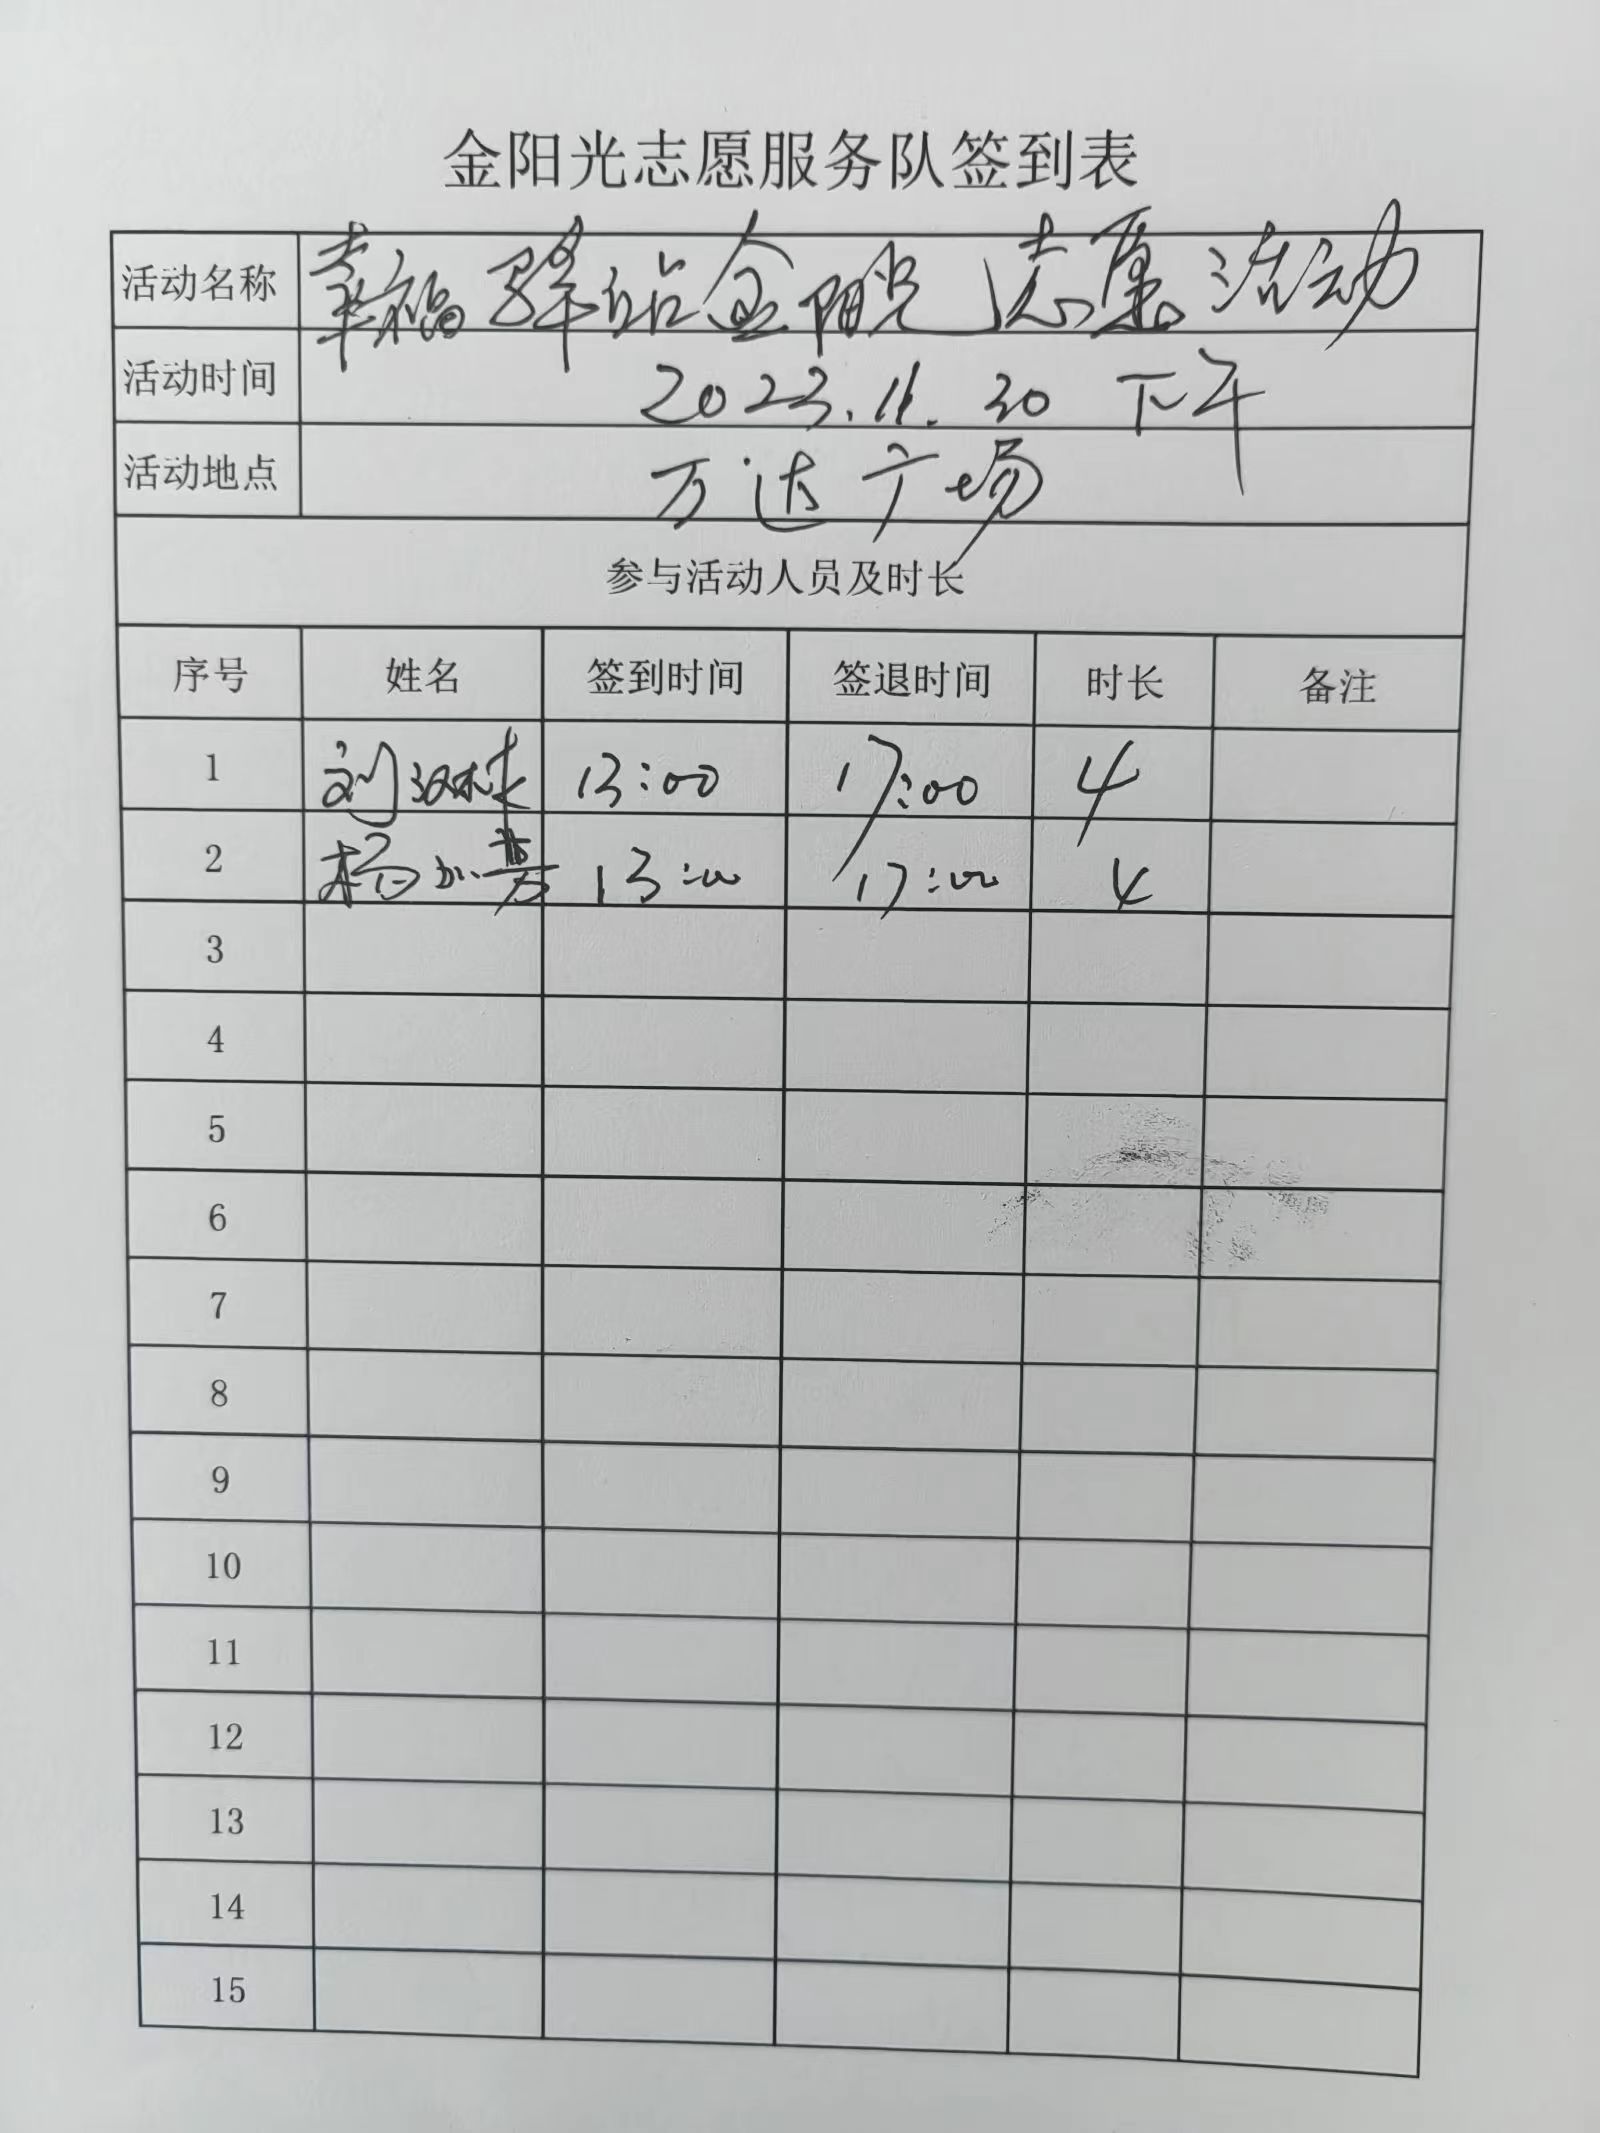 金阳光志愿服务队签到表
活动名称 幸福驿站金阳光志愿活动
活动时间 2023.11.30 下午
活动地点 万达广场
参与活动人员及时长
序号 姓名 签到时间 签退时间 时长 备注
1 刘汉林 13:00 17:00 4
2 杨 13:00 17:00 4
3
4
5
6
7
8
9
10
11
12
13
14
15